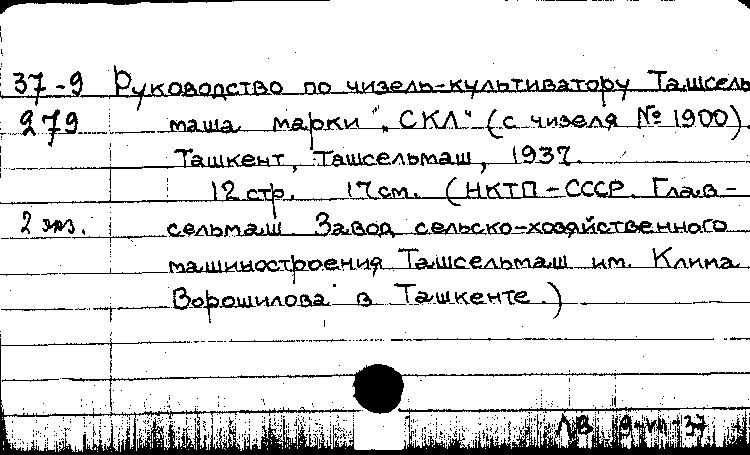 37-9 Руководство по чизель-культиватору Ташсель
279 маша марки "СКЛ" (с чизеля № 1900).
Ташкент, Ташсельмаш, 1937.
12 стр. 17 см. (НКТП-СССР. Глав-
2 экз. сельмаш Завод сельско-хозяйственного
машиностроения Ташсельмаш им. Клима
Ворошилова в Ташкенте.)
ЛВ 9-VII-37